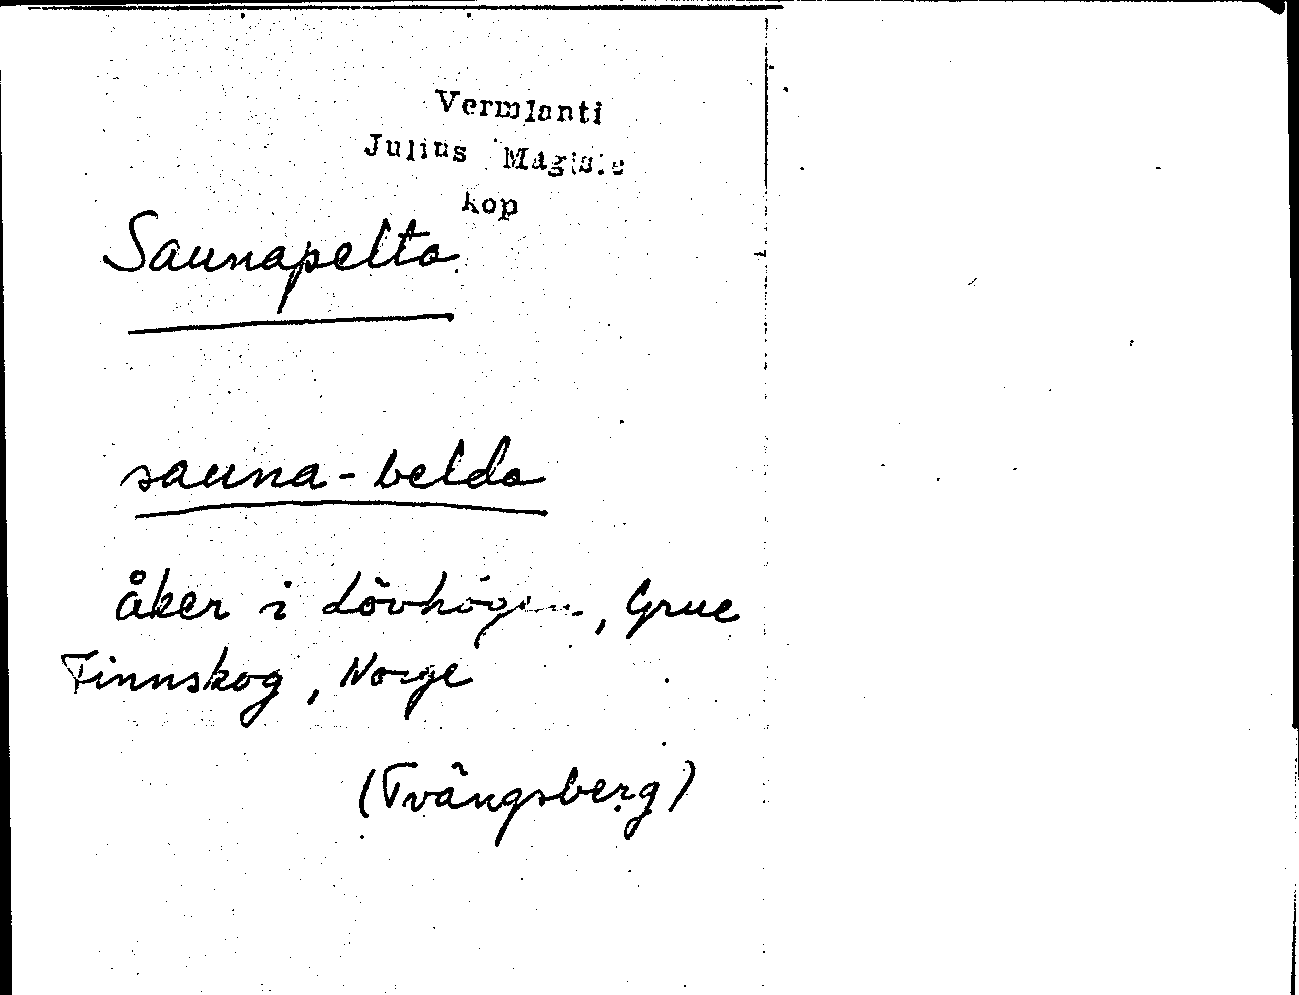 Vermlanti
Julius Mägiste
kop
Saunapelto
sauna-beldo
åker i Lövhögen, Grue
Finnskog, Norge
(Tvängsberg)